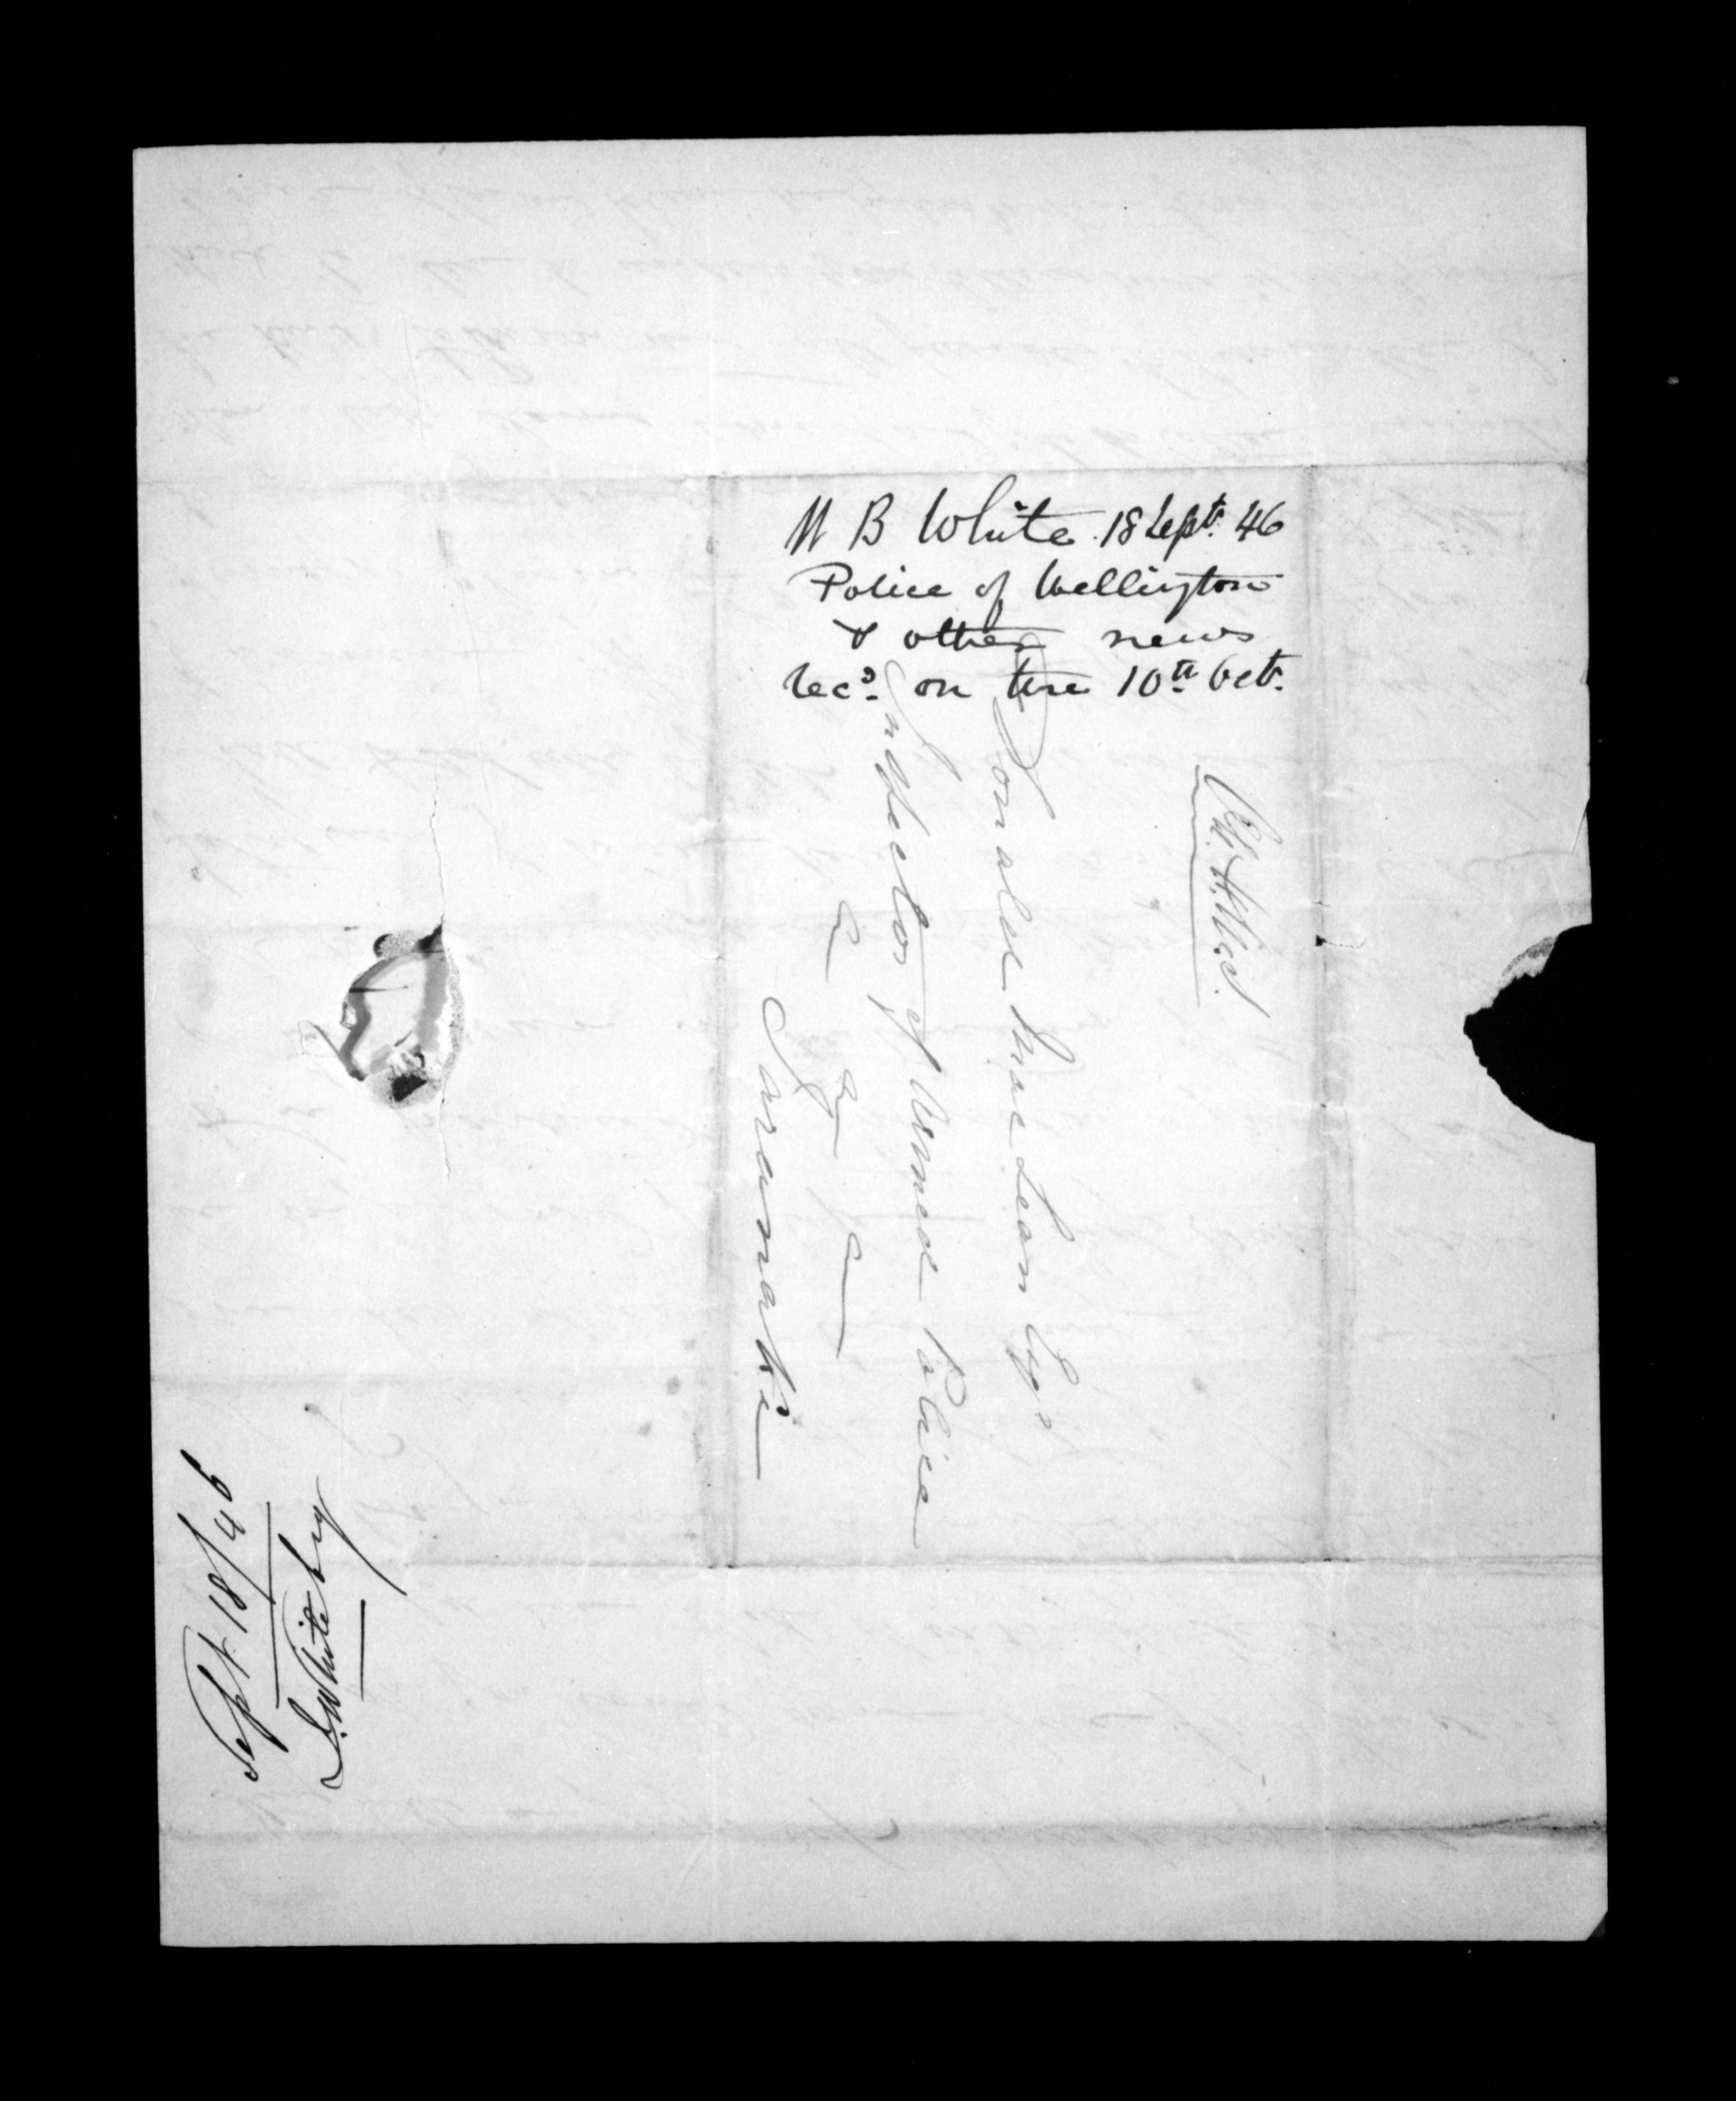 W B White 18 Septr. 46
Police of Wellington
& other news
Recd. on the 10th Octr.
O.H.M.S.
Donald MacLean Esqr
Inspector of Armed Police
&c &c &c
Taranaki
Sept 18/46
White Esq